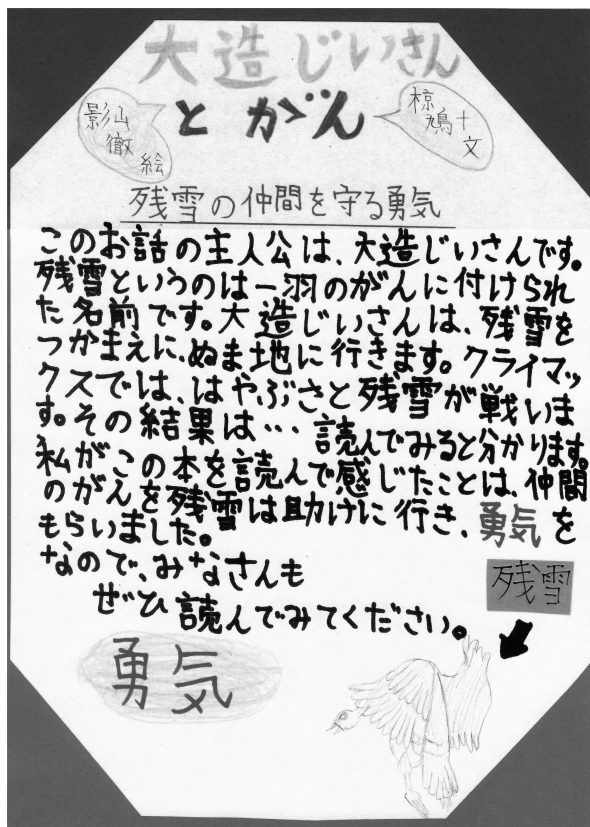 大造じいさん
とがん
影山
徹
絵
椋
鳩十
文
残雪の仲間を守る勇気
このお話の主人公は、大造じいさんです。
残雪というのは一羽のがんに付けられ
た名前です。大造じいさんは、残雪を
つかまえに、ぬま地に行きます。クライマッ
クスでは、はやぶさと残雪が戦いま
す。その結果は…読んでみると分かります。
私がこの本を読んで感じたことは、仲間
のがんを残雪は助けに行き、勇気を
もらいました。
なので、みなさんも
ぜひ読んでみてください。
残雪
勇気